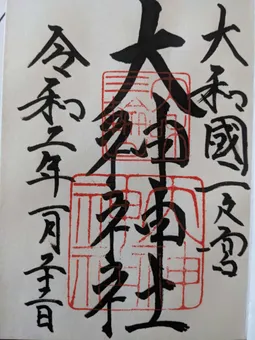 大和國一之宮
大神神社
令和二年一月
大神神社